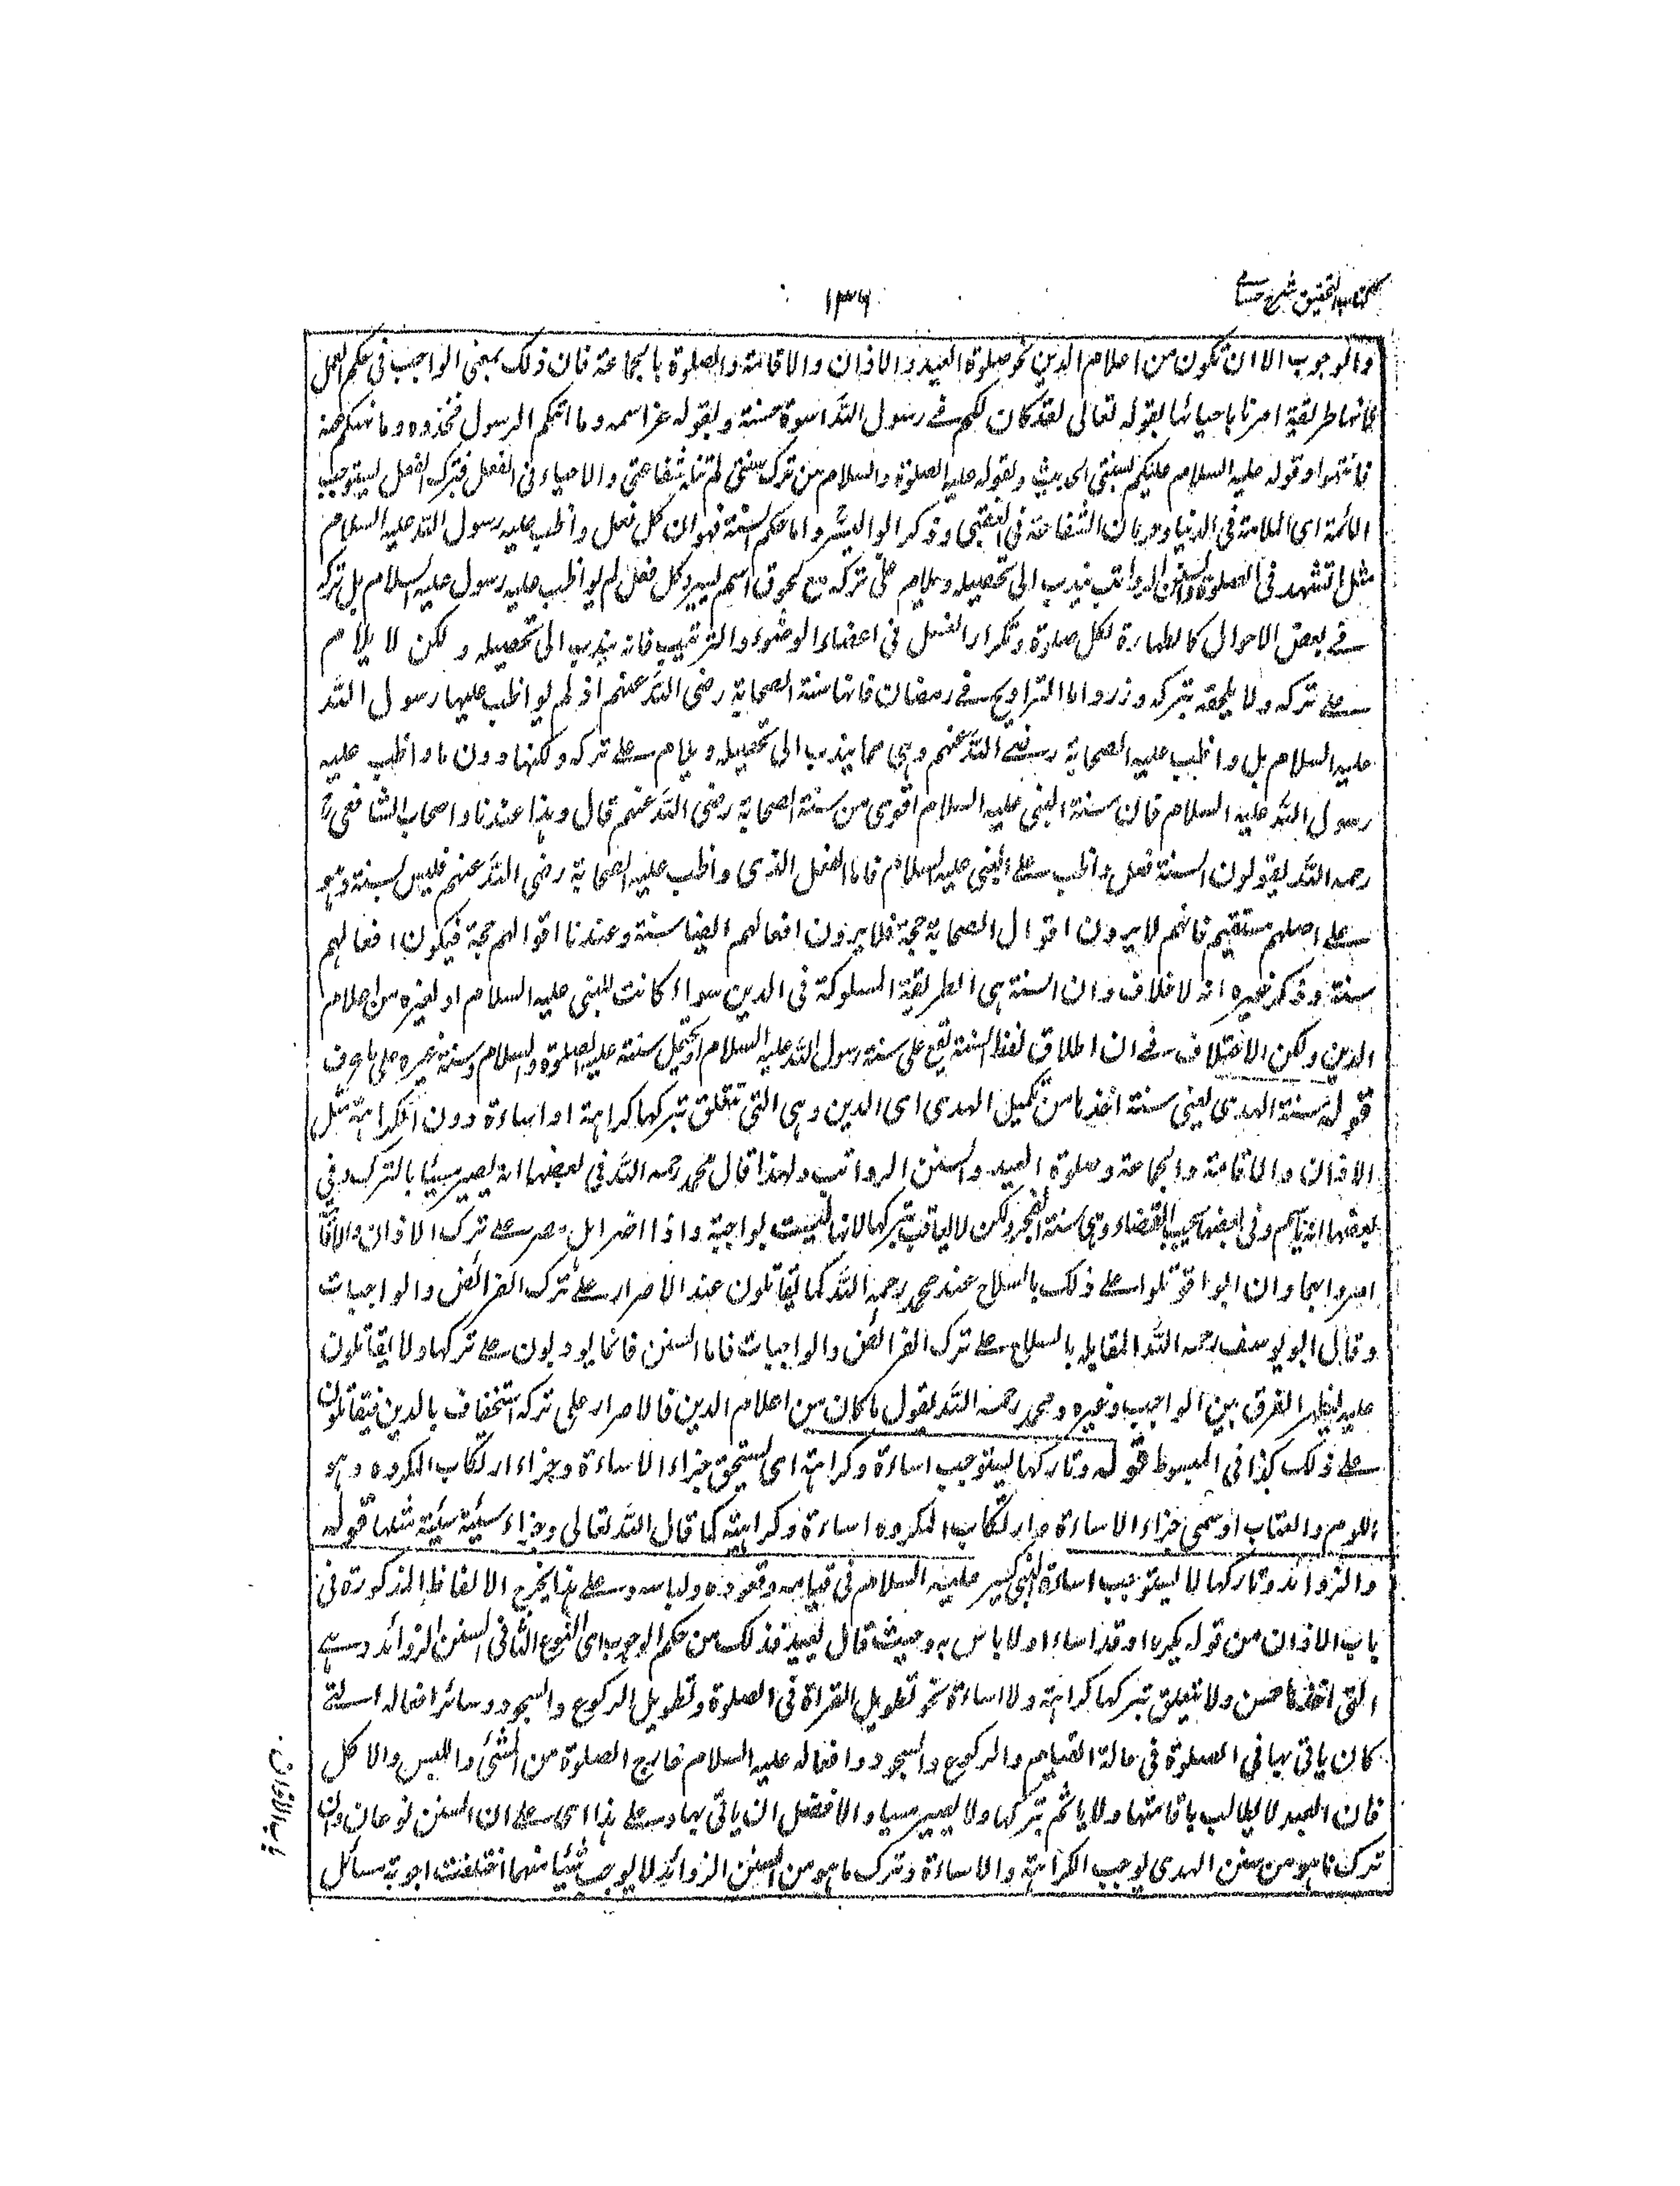 كتاب التحقيق شرح حسامي
١٣٦
والوجوب الا ان تكون من اعلام الدين نحو صلوة العيد والاذان والاقامة والصلوة بالجماعة فان ذلك بمعنى الواجب في حكم العمل
لانها طريقة امرنا باحيائها بقوله تعالى لقد كان لكم في رسول الله اسوة حسنة وبقوله عز اسمه وما اتىكم الرسول فخذوه وما نهىكم عنه
فانتهوا وقوله عليه السلام عليكم بسنتي الحديث ولقوله عليه الصلوة والسلام من ترك سنتي لم تنله شفاعتي والاحياء في الفعل فبترك الفعل يستوجب
اللائمة اي الملامة في الدنيا وحرمان الشفاعة في العقبى وذكر ابو اليسر واما حكم السنة فهو ان كل فعل واظب عليه رسول الله عليه السلام
مثل التشهد في الصلوة والسنن الرواتب يندب الى تحصيله ويلام على تركه مع لحوق اسم يسير وكل فعل لم يواظب عليه رسول عليه السلام بل تركه
في بعض الاحوال كالطهارة لكل صلوة وتكرار الغسل في اعضاء الوضوء والترتيب فانه يندب الى تحصيله ولكن لا يلام
على تركه ولا يلحقه بتركه وزر واما التراويح في رمضان فانها سنة الصحابة رضى الله عنهم اذ لم يواظب عليها رسول الله
عليه السلام بل واظب عليه الصحابة رضى الله عنهم وهي مما يندب الى تحصيله ويلام على تركه ولكنها دون ما واظب عليه
رسول الله عليه السلام فان سنة النبي عليه السلام اقوى من سنة الصحابة رضى الله عنهم قال وهذا عندنا واصحاب الشافعي
رحمه الله يقولون السنة فعل واظب على النبي عليه السلام فاما الفعل الذى واظب عليه الصحابة رضى الله عنهم فليس بسنة وهو
على اصلهم مستقيم فانهم لا يرون اقوال الصحابة حجة فلا يرون افعالهم ايضا سنة وعندنا اقوالهم حجة فيكون افعالهم
سنة وذكر غيره انه لا خلاف وان السنة هي الطريقة المسلوكة في الدين سواء كانت للنبي عليه السلام او لغيره من اعلام
الدين ولكن الاختلاف في ان اطلاق لفظ السنة تقع على سنة رسول الله عليه السلام او يحتمل سنته عليه الصلوة والسلام وسنة غيره على ما عرف
قوله سنة الهدى يعني سنة اخذها من تكميل الهدى اى الدين وهي التي تتعلق بتركها كراهة او اساءة دون الكراهة مثل
الاذان والاقامة والجماعة وصلوة العيد والسنن الرواتب ولهذا قال محمد رحمه الله في بعضها انه يصير مسيئا بالترك وفي
بعضها انه يأثم وفي بعضها يجب القضاء وهي سنة الفجر ولكن لا يعاقب بتركها لانها ليست بواجبة واذا اصر اهل مصر على ترك الاذان والاقامة
امروا بهما وان ابوا قوتلوا على ذلك بالسلاح عند محمد رحمه الله كما يقاتلون عند الاصرار على ترك الفرائض والواجبات
وقال ابو يوسف رحمه الله المقابله بالسلاح على ترك الفرائض والواجبات فاما السنن فانما يودبون على تركها ولا يقاتلون
عليه ليظهر الفرق بين الواجب وغيره ومحمد رحمه الله يقول ما كان من اعلام الدين فالاصرار على تركه استخفاف بالدين فيقاتلون
على ذلك كذا في المبسوط قوله وتاركها يستوجب اساءة وكراهة اى يستحق جزاء الاساءة وجزاء ارتكاب المكروه وهو
اللوم والعتاب او سمى جزاء الاساءة وارتكاب المكروه اساءة وكراهة كما قال الله تعالى وجزاء سيئة سيئة مثلها قوله
والزوائد وتاركها لا يستوجب اساءة كسير النبي عليه السلام في قيامه وقعوده ولباسه وعلى هذا يخرج الالفاظ المذكورة في
باب الاذان من قوله يكره او قد اساء او لا باس به وحيث قال يعيد فذلك من حكم الوجوب اى النوع الثانى السنن الزوائد وهي
التي اخذها حسن ولا يتعلق بتركها كراهة ولا اساءة نحو تطويل القراة في الصلوة وتطويل الركوع والسجود وسائر افعاله التي
كان ياتى بها في الصلوة في حالة القيام والركوع والسجود وافعاله عليه السلام خارج الصلوة من المشئ واللبس والاكل
فان العبد لا يطالب باقامتها ولا ياثم بتركها ولا يصير مسيا والافضل ان ياتى بها وعلى هذا اى على ان السنن نوعان وان
ترك ما هو من سنن الهدى يوجب الكراهة والاساءة وترك ما هو من السنن الزوائد لا يوجب شيئا منهما اختلفت اجوبة مسائل
باب الاذان